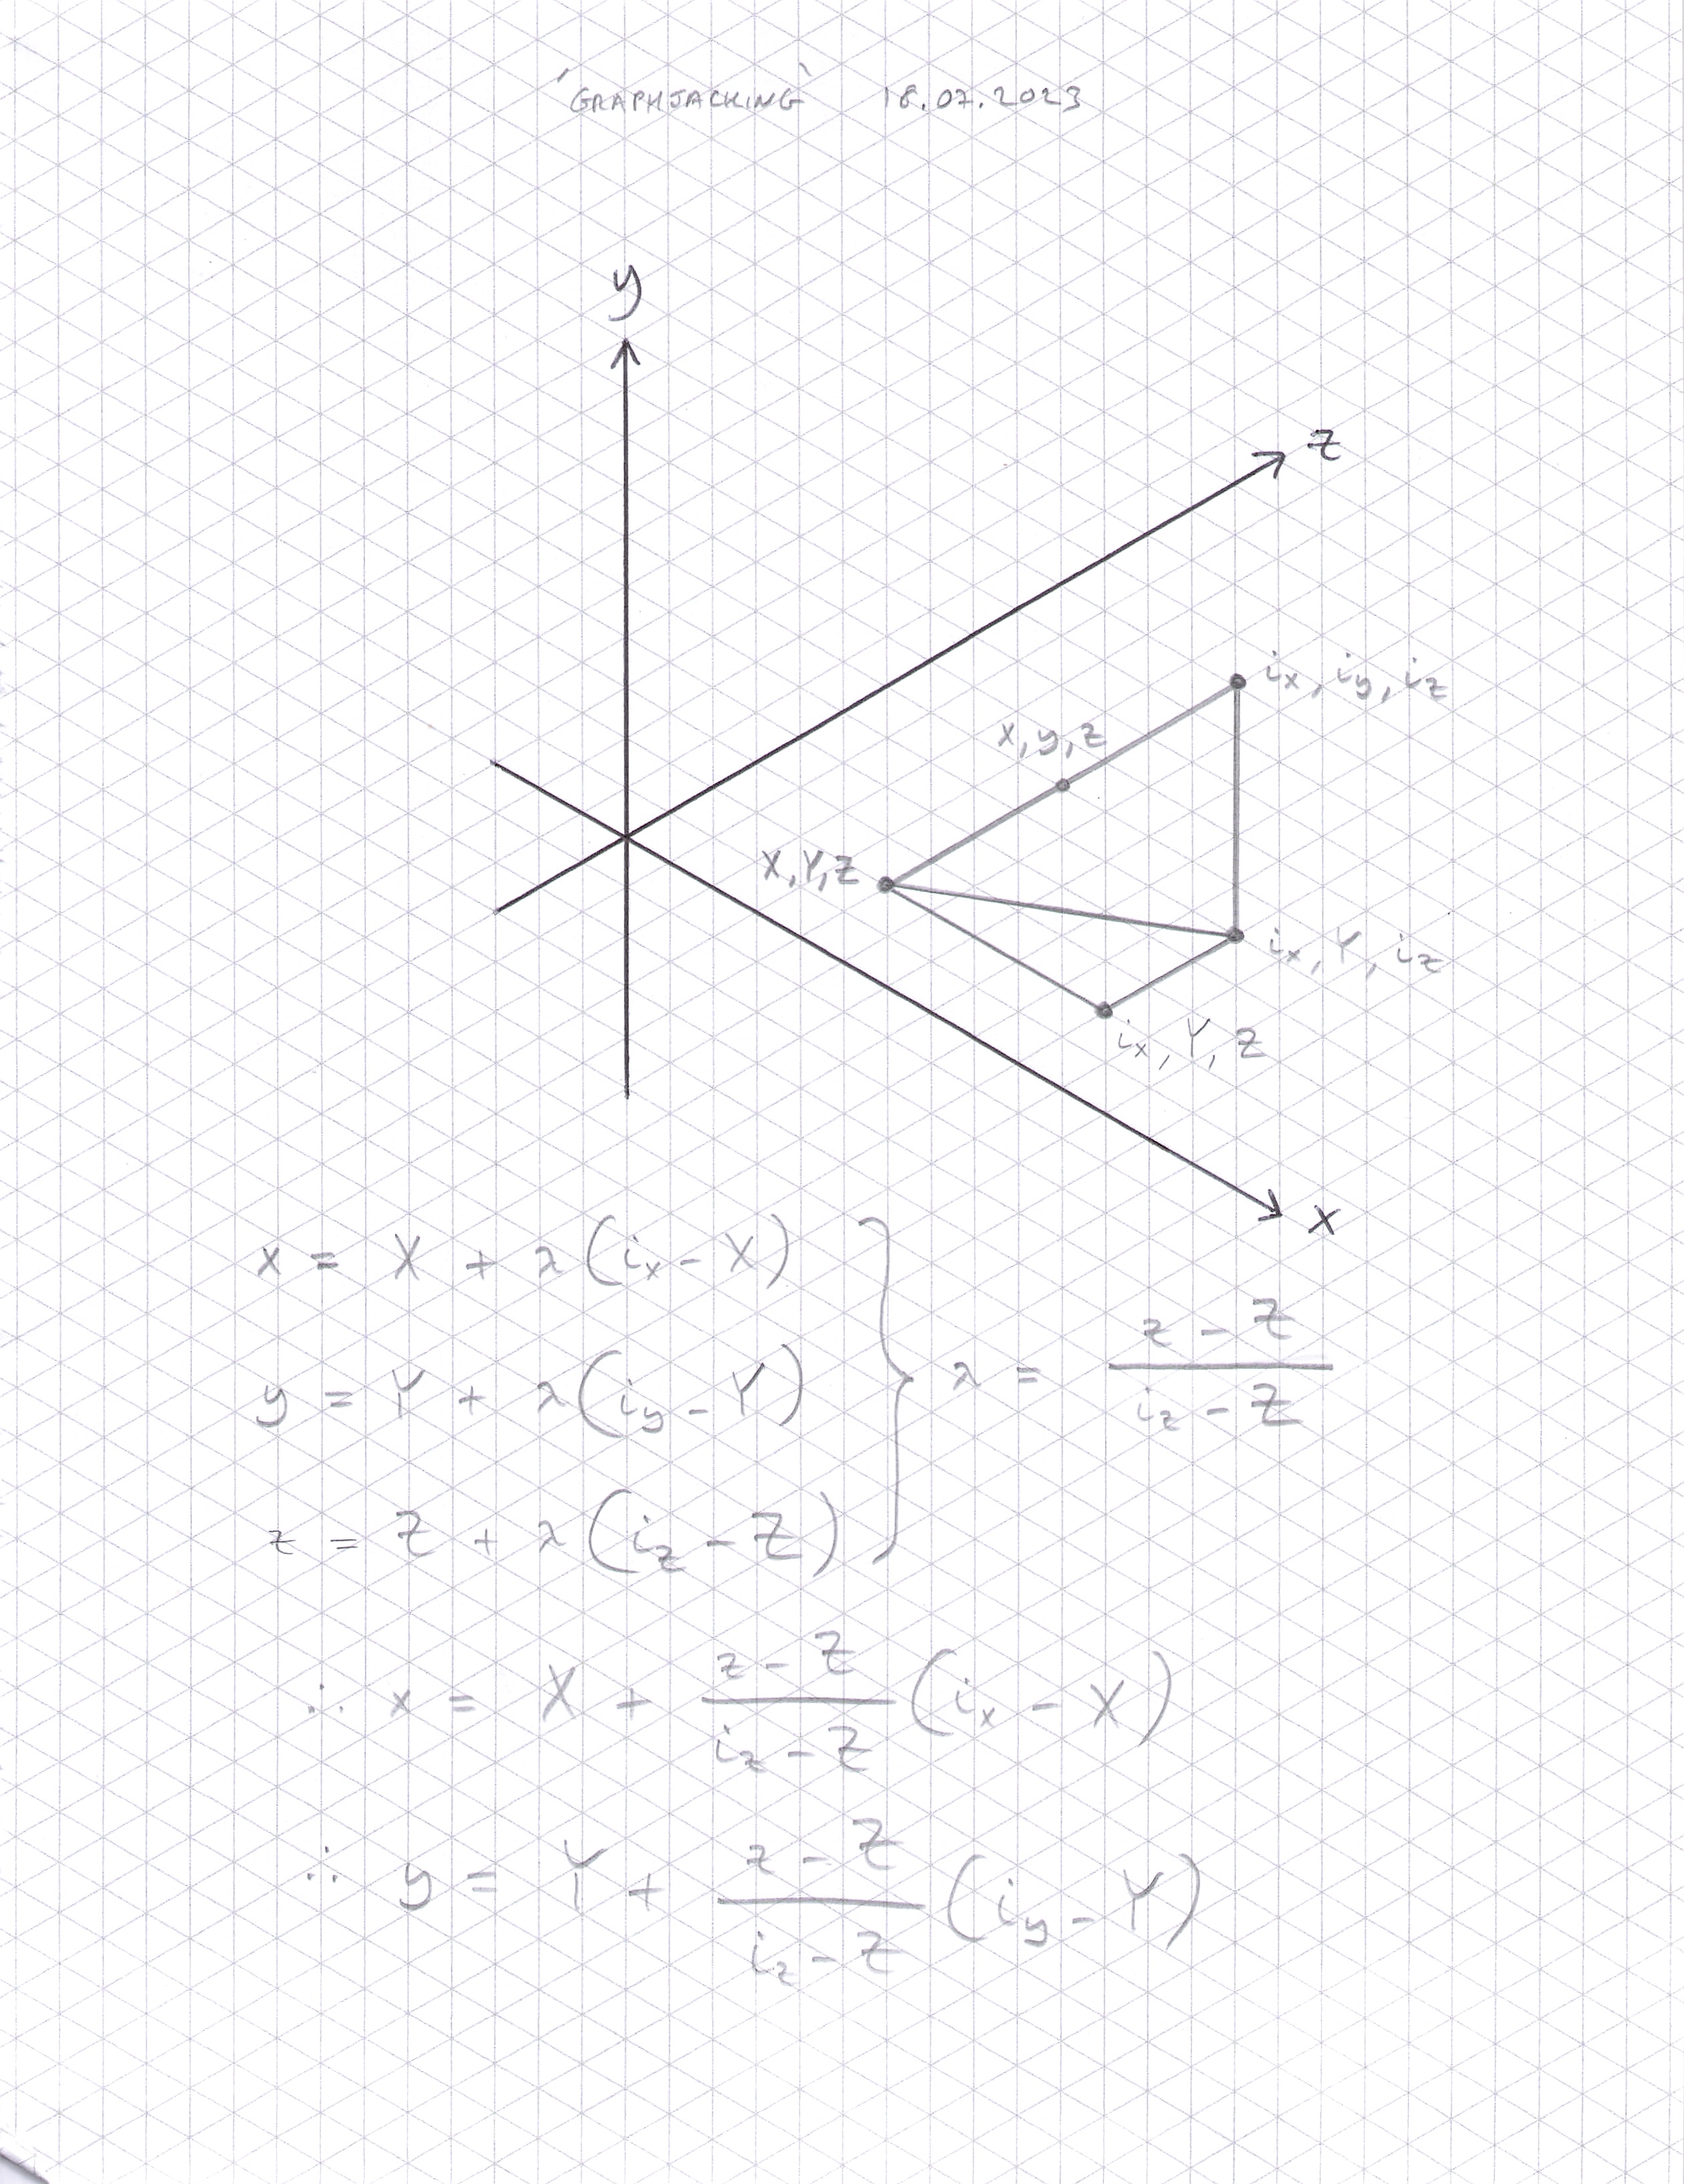 'GRAPHJACKING' 18.07.2023
y
z
ix, iy, iz
x, y, z
X, Y, Z
ix, Y, iz
ix, Y, Z
x
x = X + λ(ix - X)
y = Y + λ(iy - Y)
z = Z + λ(iz - Z)
λ = z - Z
iz - Z
∴ x = X + z - Z (ix - X)
iz - Z
∴ y = Y + z - Z (iy - Y)
iz - Z